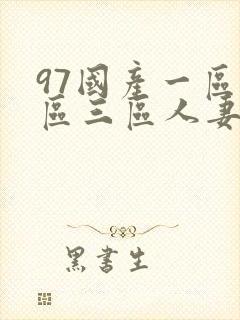 97國產一區
區三區人妻
黑書生